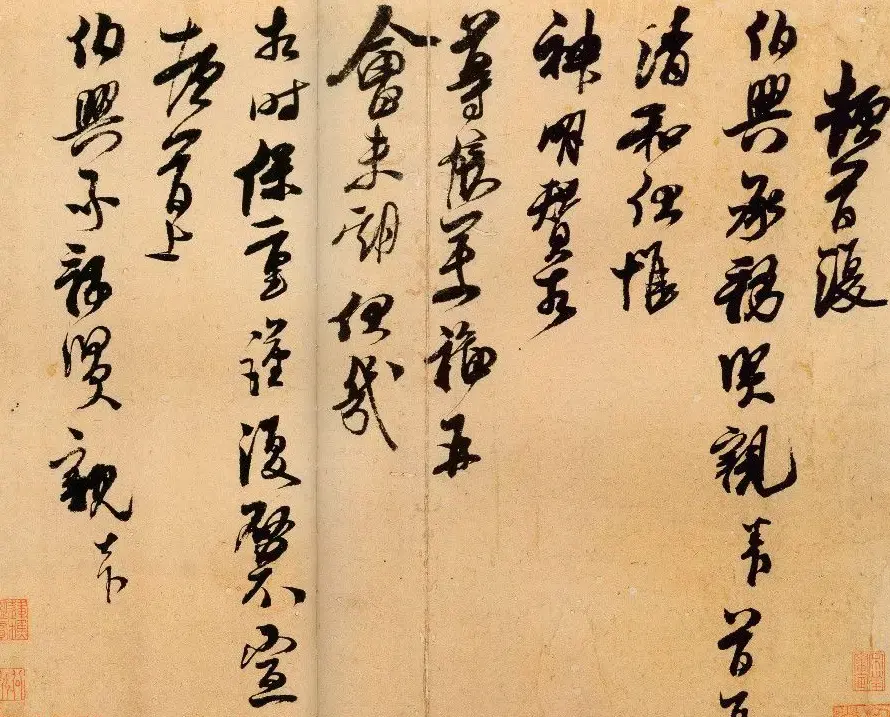 首復
伯興承務賢親 首夏
清和伏惟
神明贊相
尊候萬福再
會未期伏幾
相時保重謹復啟不宣
首上
伯興承務賢親